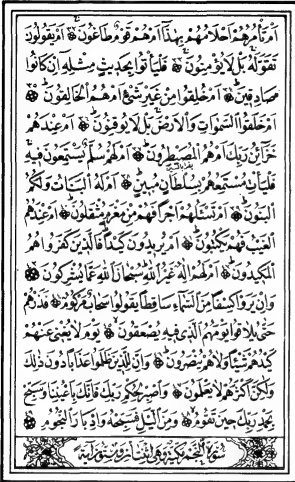 أَمْ تَأْمُرُهُمْ أَحْلَامُهُمْ بِهَٰذَا أَمْ هُمْ قَوْمٌ طَاغُونَ أَمْ يَقُولُونَ
تَقَوَّلَهُ بَلْ لَا يُؤْمِنُونَ فَلْيَأْتُوا بِحَدِيثٍ مِثْلِهِ إِنْ كَانُوا
صَادِقِينَ أَمْ خُلِقُوا مِنْ غَيْرِ شَيْءٍ أَمْ هُمُ الْخَالِقُونَ
أَمْ خَلَقُوا السَّمٰوَاتِ وَالْأَرْضَ بَلْ لَا يُوقِنُونَ أَمْ عِنْدَهُمْ
خَزَائِنُ رَبِّكَ أَمْ هُمُ الْمُصَيْطِرُونَ أَمْ لَهُمْ سُلَّمٌ يَسْتَمِعُونَ فِيهِ
فَلْيَأْتِ مُسْتَمِعُهُمْ بِسُلْطَانٍ مُبِينٍ أَمْ لَهُ الْبَنَاتُ وَلَكُمُ
الْبَنُونَ أَمْ تَسْأَلُهُمْ أَجْرًا فَهُمْ مِنْ مَغْرَمٍ مُثْقَلُونَ أَمْ عِنْدَهُمُ
الْغَيْبُ فَهُمْ يَكْتُبُونَ أَمْ يُرِيدُونَ كَيْدًا فَالَّذِينَ كَفَرُوا هُمُ
الْمَكِيدُونَ أَمْ لَهُمْ إِلٰهٌ غَيْرُ اللّٰهِ سُبْحَانَ اللّٰهِ عَمَّا يُشْرِكُونَ
وَإِنْ يَرَوْا كِسْفًا مِنَ السَّمَاءِ سَاقِطًا يَقُولُوا سَحَابٌ مَرْكُومٌ فَذَرْهُمْ
حَتّٰى يُلَاقُوا يَوْمَهُمُ الَّذِي فِيهِ يُصْعَقُونَ يَوْمَ لَا يُغْنِي عَنْهُمْ
كَيْدُهُمْ شَيْئًا وَلَا هُمْ يُنْصَرُونَ وَإِنَّ لِلَّذِينَ ظَلَمُوا عَذَابًا دُونَ ذٰلِكَ
وَلٰكِنَّ أَكْثَرَهُمْ لَا يَعْلَمُونَ وَاصْبِرْ لِحُكْمِ رَبِّكَ فَإِنَّكَ بِأَعْيُنِنَا وَسَبِّحْ
بِحَمْدِ رَبِّكَ حِينَ تَقُومُ وَمِنَ اللَّيْلِ فَسَبِّحْهُ وَإِدْبَارَ النُّجُومِ
سُورَةُ النَّجْمِ مَكِّيَّةٌ وَهِيَ اثْنَتَانِ وَسِتُّونَ آيَةً